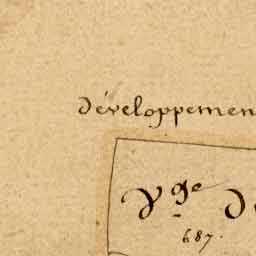 développemen
Vge de
687.